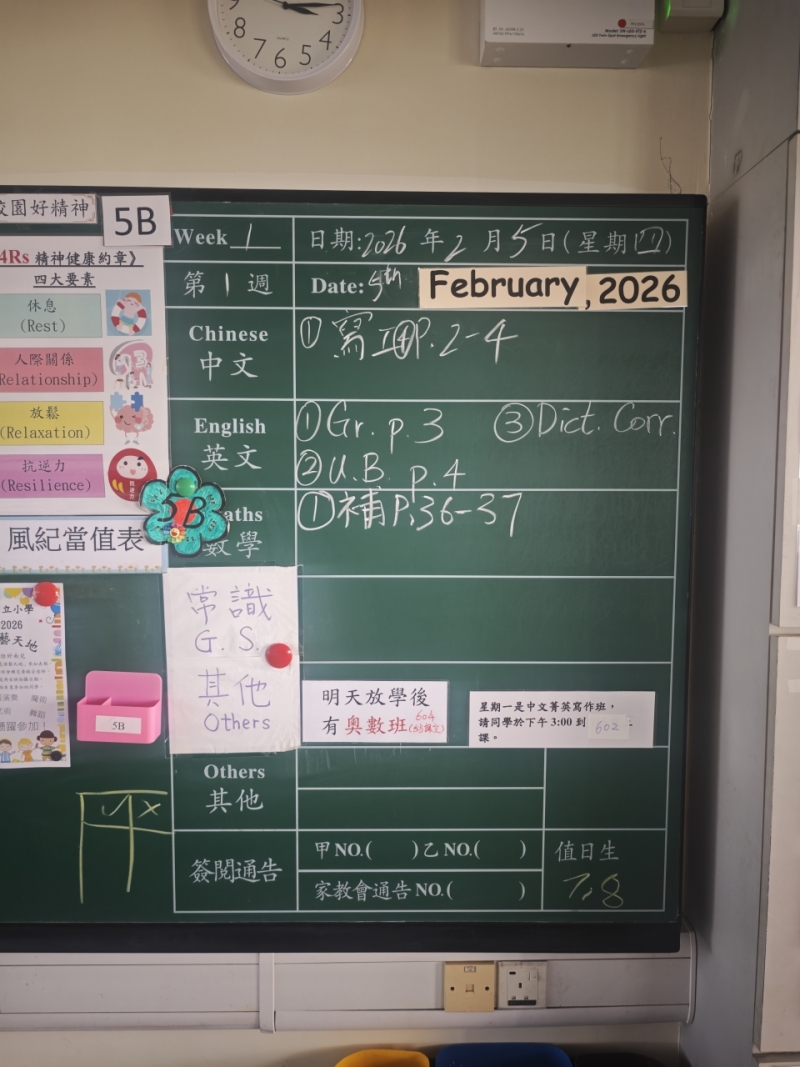 9
8 7 6 5 4 3
校園好精神
5B
4Rs 精神健康約章》
四大要素
休息
(Rest)
人際關係
Relationship)
放鬆
(Relaxation)
抗逆力
(Resilience)
5B
風紀當值表
立小學
2026
5B
Week 1
日期:2026 年 2 月 5 日(星期四)
第 1 週
Date: 5th February, 2026
Chinese
中文
① 寫 P.2-4
English
英文
① Gr. p.3 ③ Dict. Corr.
② U.B. p.4
aths
數學
① 補 P.36-37
常識
G.S.
其他
Others
明天放學後
有奧數班
604
星期一是中文菁英寫作班，
請同學於下午 3:00 到 602
課。
Others
其他
簽閱通告
甲 NO.( ) 乙 NO.( )
家教會通告 NO.( )
值日生
7,8